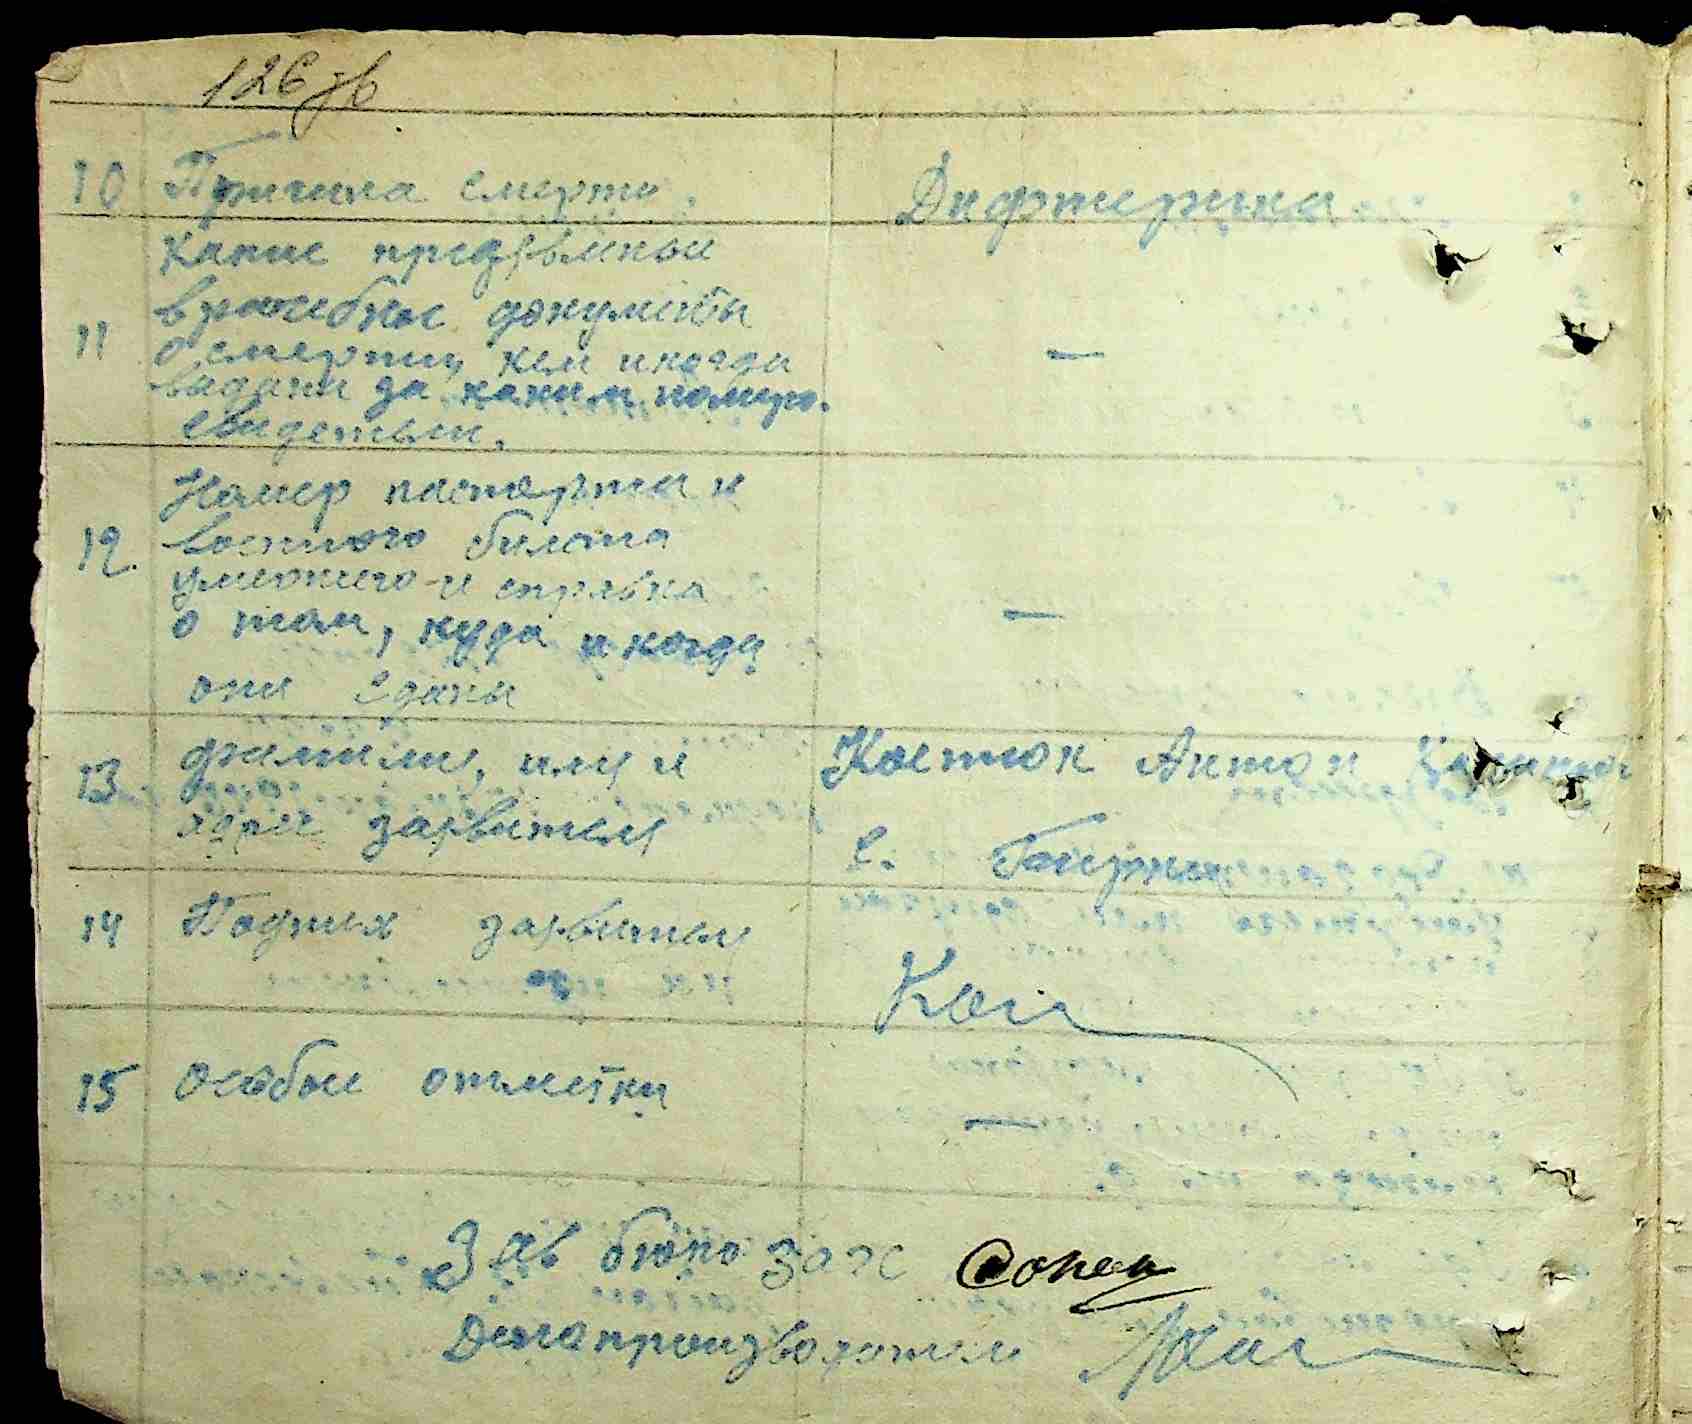 126 зв
10 Причина смерти. Дифтерика
Какие предявленые
врачебные документы
11 о смерти, кем и когда —
видани за каким номиро.
свидетели.
Номер паспорта и
12. военного билета
умершего и справка —
о том, куда и когда
они сданы
13 фамилия, имя и Костюк Антон
адрес заявителя с.
14 Подпись заявителя
Кос
15 особые отметки —
Зав бюро загс
Делопроизводитель